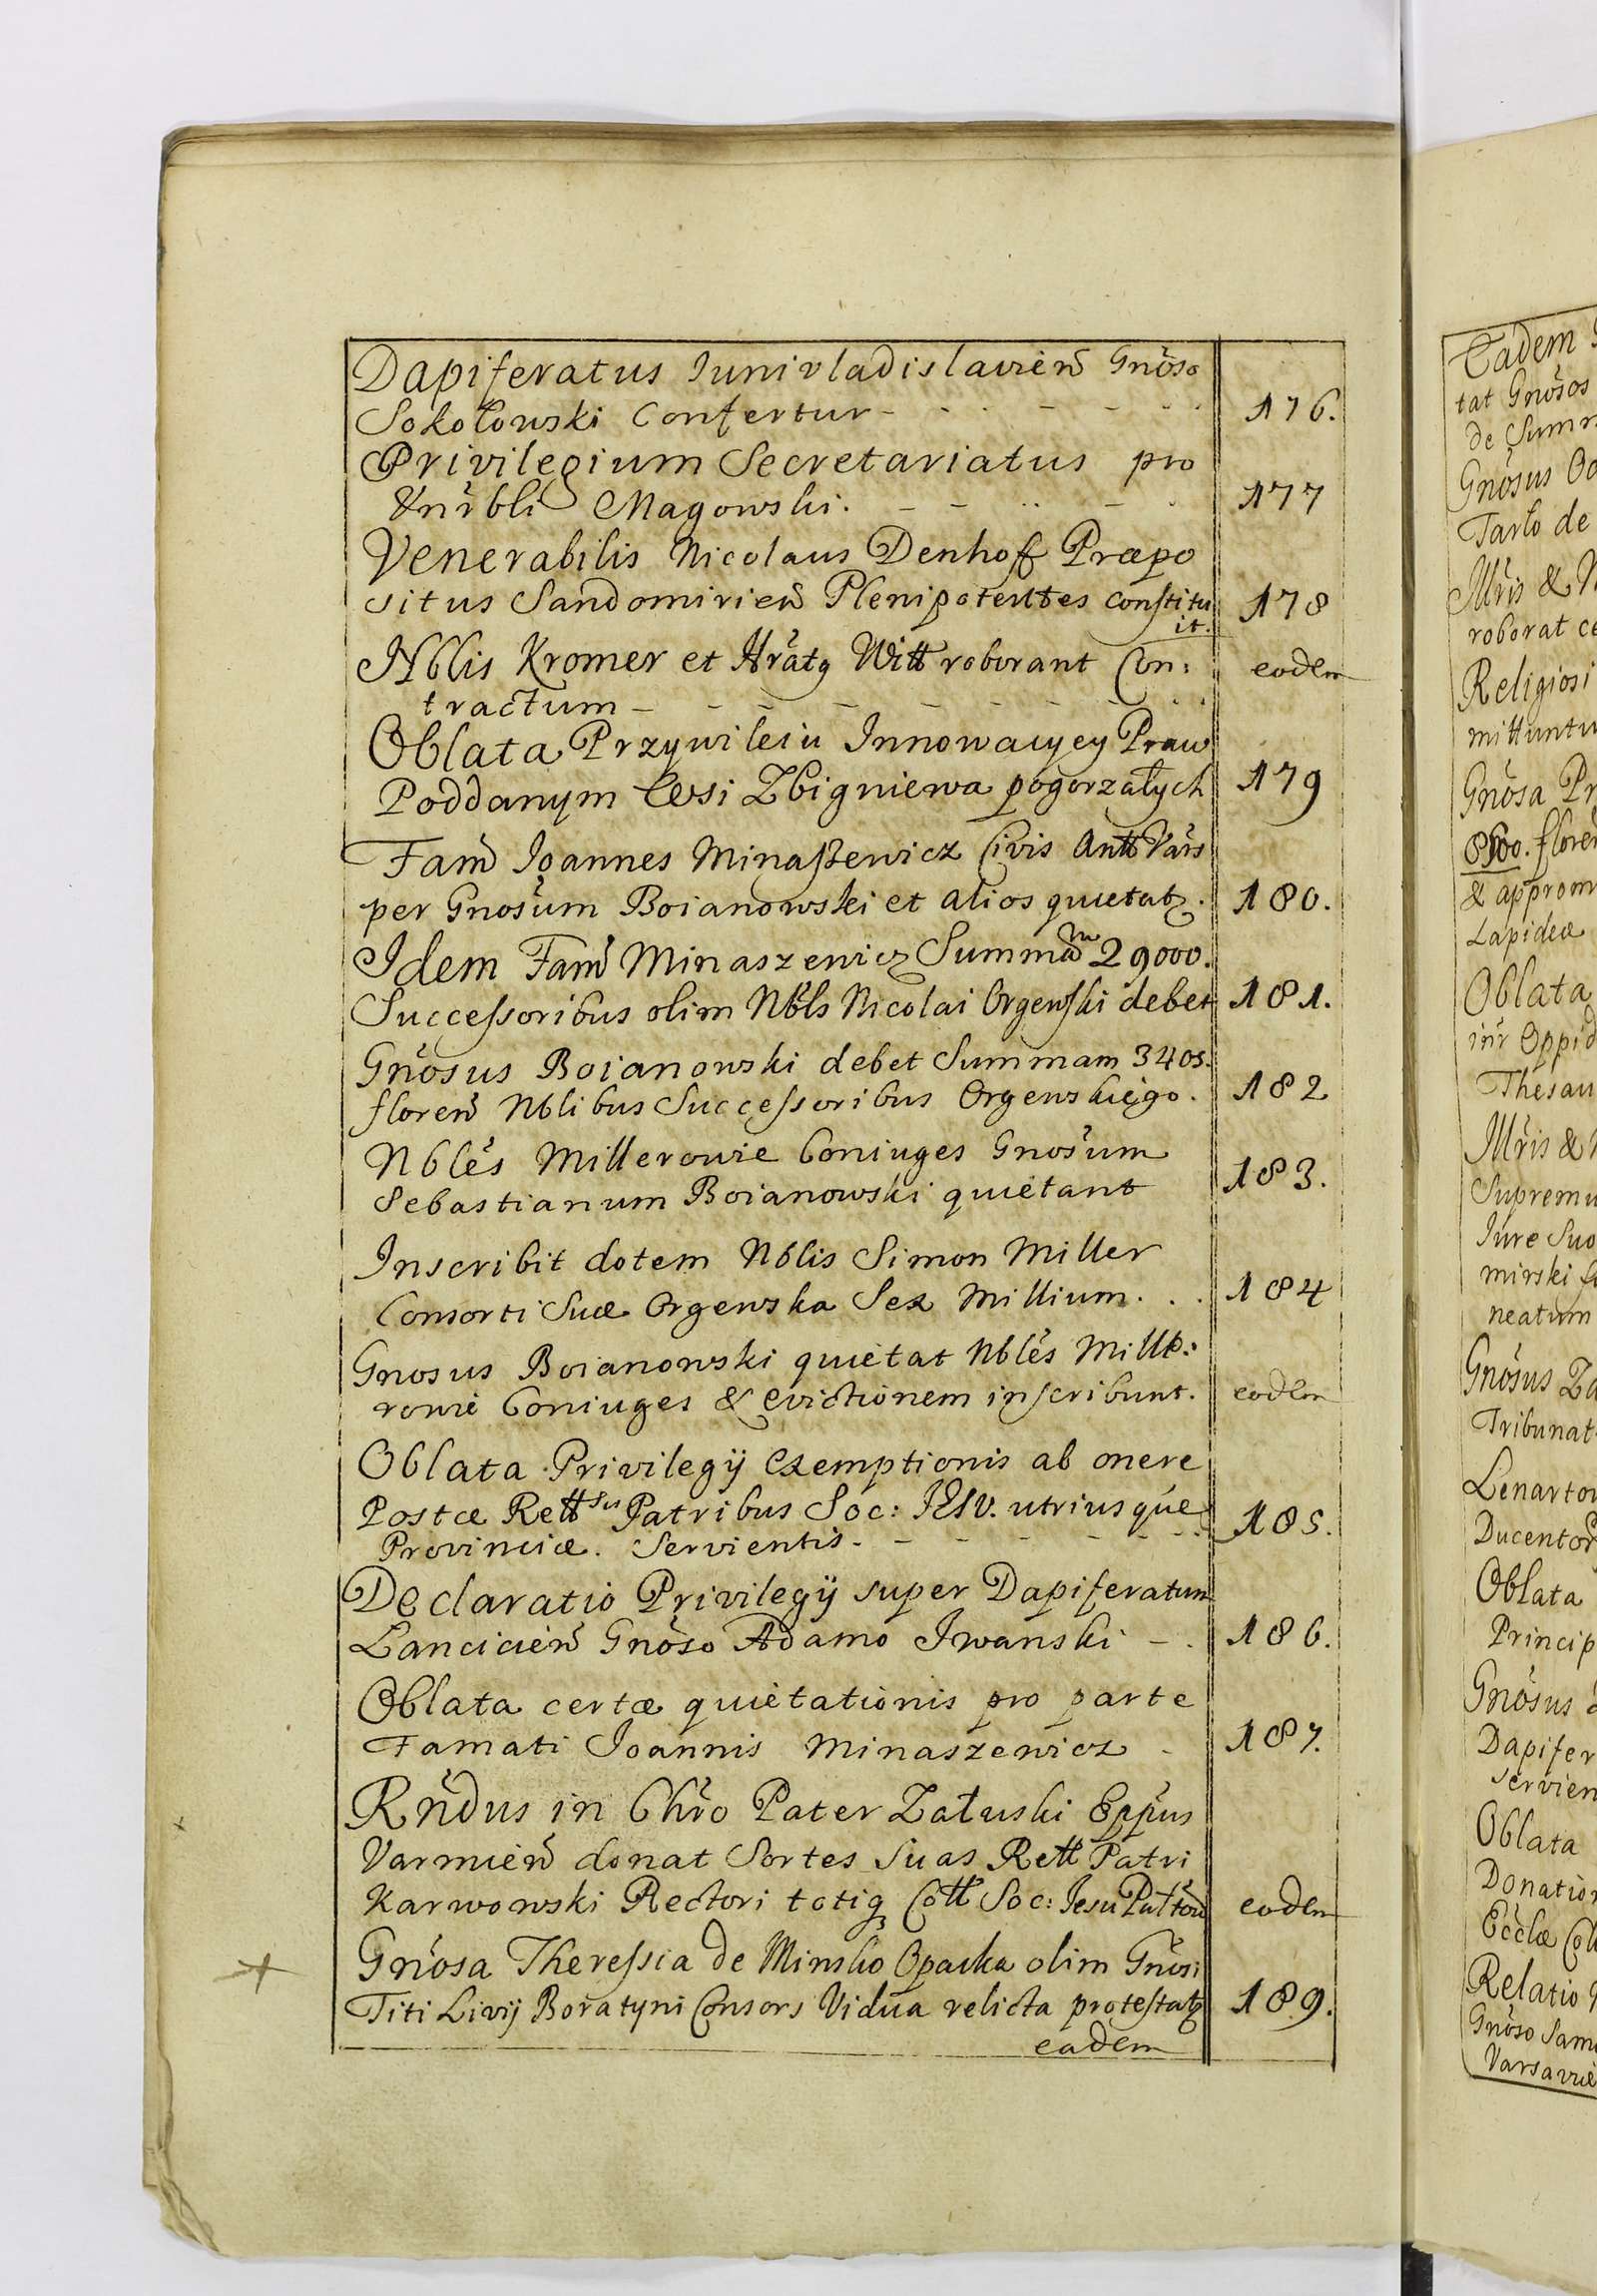 Dapiferatus Iunivladislavień Gnoso
Sokołowski Confertur - - - - - 176.
Privilegium Secretariatus pro
Magowski. - - - - 177
Venerabilis Nicolaus Denhoff Præpo
situs Sandomirień Plenipotentes constitu 178
it.
Nblis Kromer et Witt roborant Con: eodem
tractum - - - - - - -
Oblata Przywileiu Innowacyey Praw
Poddanym Wsi Zbigniewa pogorzałych 179
Fam̃ Ioannes Minaszewicz Civis Antt Vars
per Gnosum Boianowski et alios quietatz. 180.
Idem Fam̃ Minaszewicz Summam 29000.
Successoribus olim Nbls Nicolai Orgewski debet 181.
Gnosus Boianowski debet Summam 3405.
floreñ Nblibus Successoribus Orgewskiego. 182
Nbles Millerowie Coniuges Gnosum
Sebastianum Boianowski quietant 183.
Inscribit dotem Nblis Simon Miller
Consorti Suæ Orgewska Sex Millium. . . 184
Gnosus Boianowski quietat Nbles Mille:
rowie Coniuges & evictionem inscribunt. eodem
Oblata Privilegij Exemptionis ab onere
Postæ Rett Patribus Soc: IESV. utriusque 185.
Provinciæ. Servientis. - - - - - -
Declaratio Privilegij super Dapiferatum
Lancicień Gnoso Adamo Iwanski - . 186.
Oblata certæ quietationis pro parte
Famati Ioannis Minaszewicz - 187.
Rńdus in Chro Pater Załuski Eppus
Varmień donat Sortes Suas Rett Patri
Karwowski Rectori totiq Cott Soc: Iesu Pułtow eodem
Gnosa Theressia de Minsko Opacka olim Gnosi
Titi Livij Boratyni Consors Vidua relicta protestatz 189.
eadem
Eadem
tat Gnosos
de Summ
Gnosus
Tarło de
Illris & N
roborat ce
Religiosi
mittuntu
Gnosa Pr
floreñ
& approm
Lapideæ
Oblata
inr Oppid
Thesau
Illris & N
Supremu
Iure Suo
mirski
neatum
Gnosus Za
Tribunat
Lenartow
Ducentor
Oblata
Princip
Gnosus
Dapifer
servien
Oblata
Donation
Eccłæ Coll
Relatio
Gnoso Sam
Varsavie